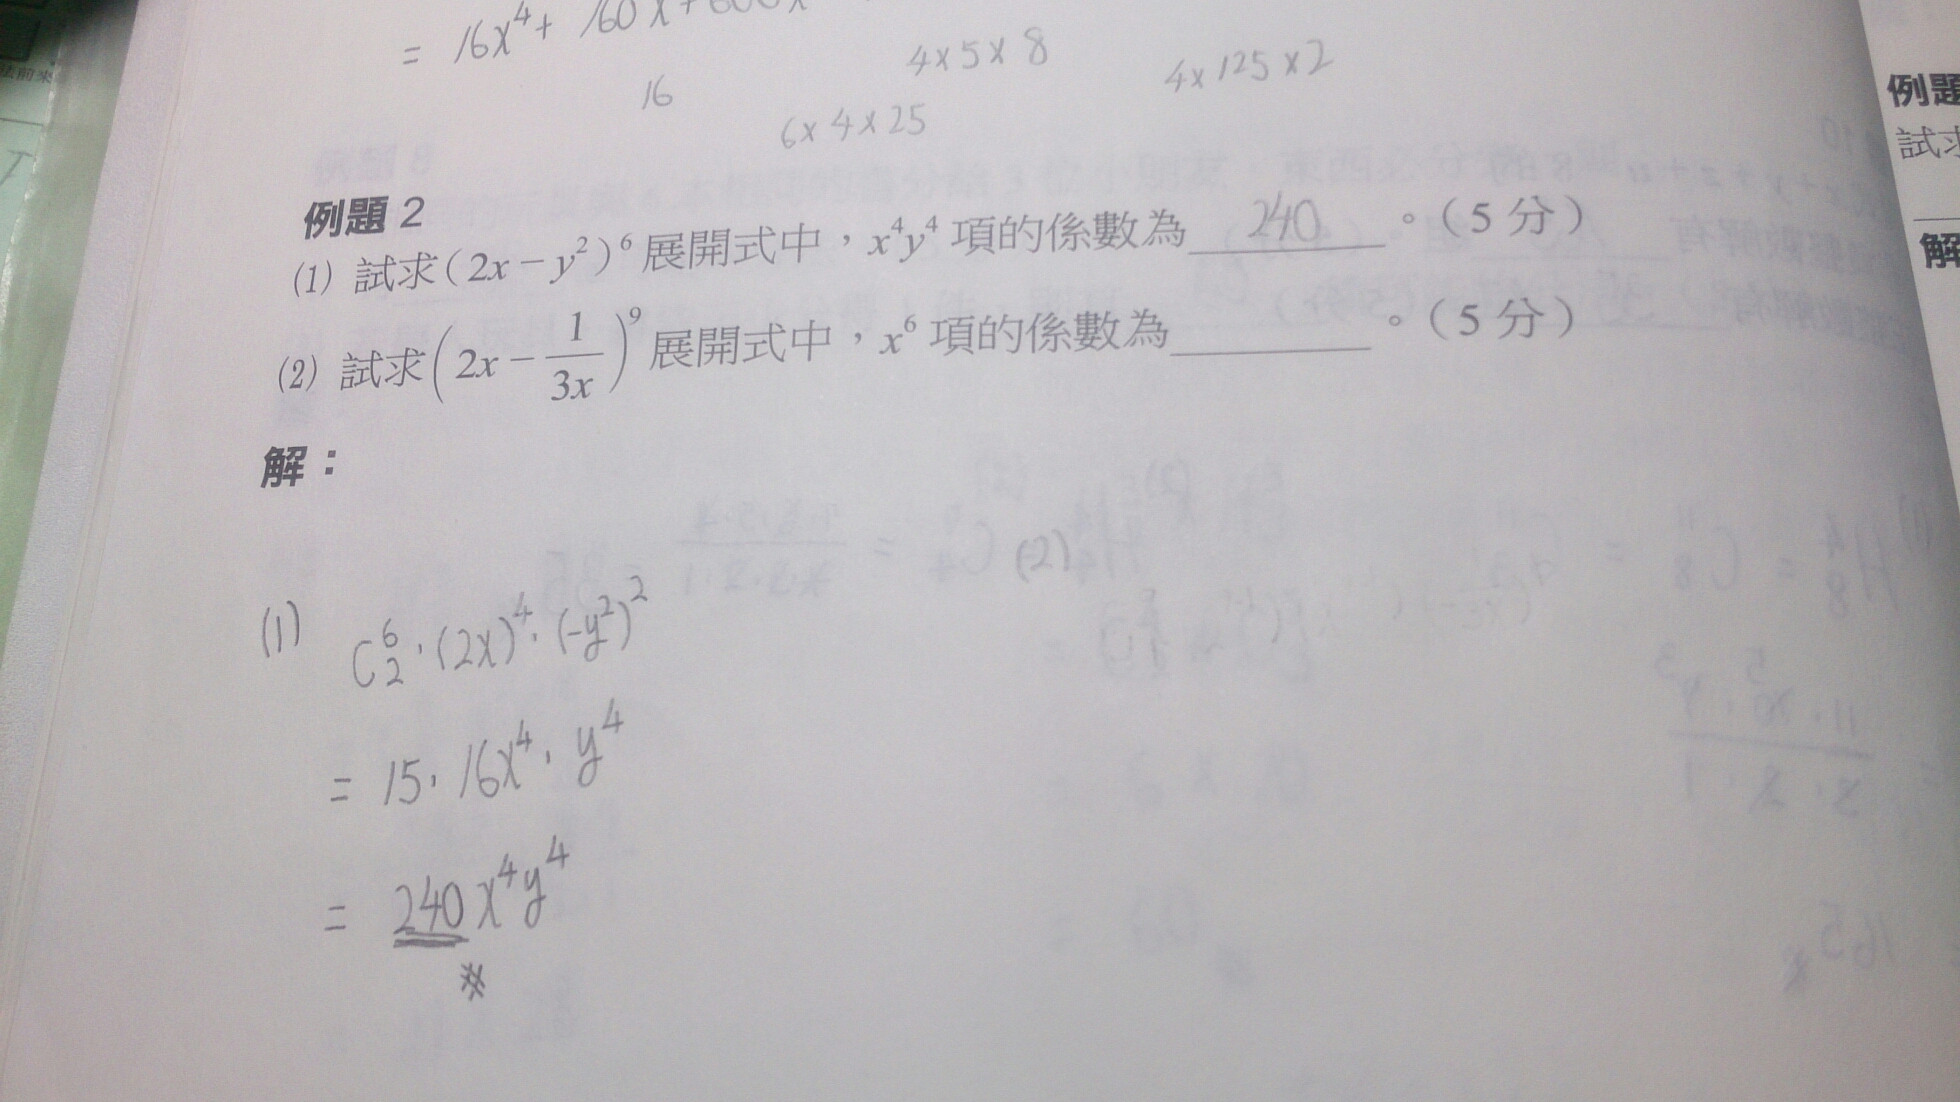 = 16x⁴ + 160x + 600x
法前來
16
4x5x8
4x125x2
6x4x25
例題 2
(1) 試求(2x－y²)⁶展開式中，x⁴y⁴項的係數為 240 。（5分）
(2) 試求(2x－1/3x)⁹展開式中，x⁶項的係數為＿＿＿。（5分）
解：
(1) C⁶₂·(2x)⁴·(-y²)²
(2)
= 15·16x⁴·y⁴
= 240x⁴y⁴
※
例題
試求
解